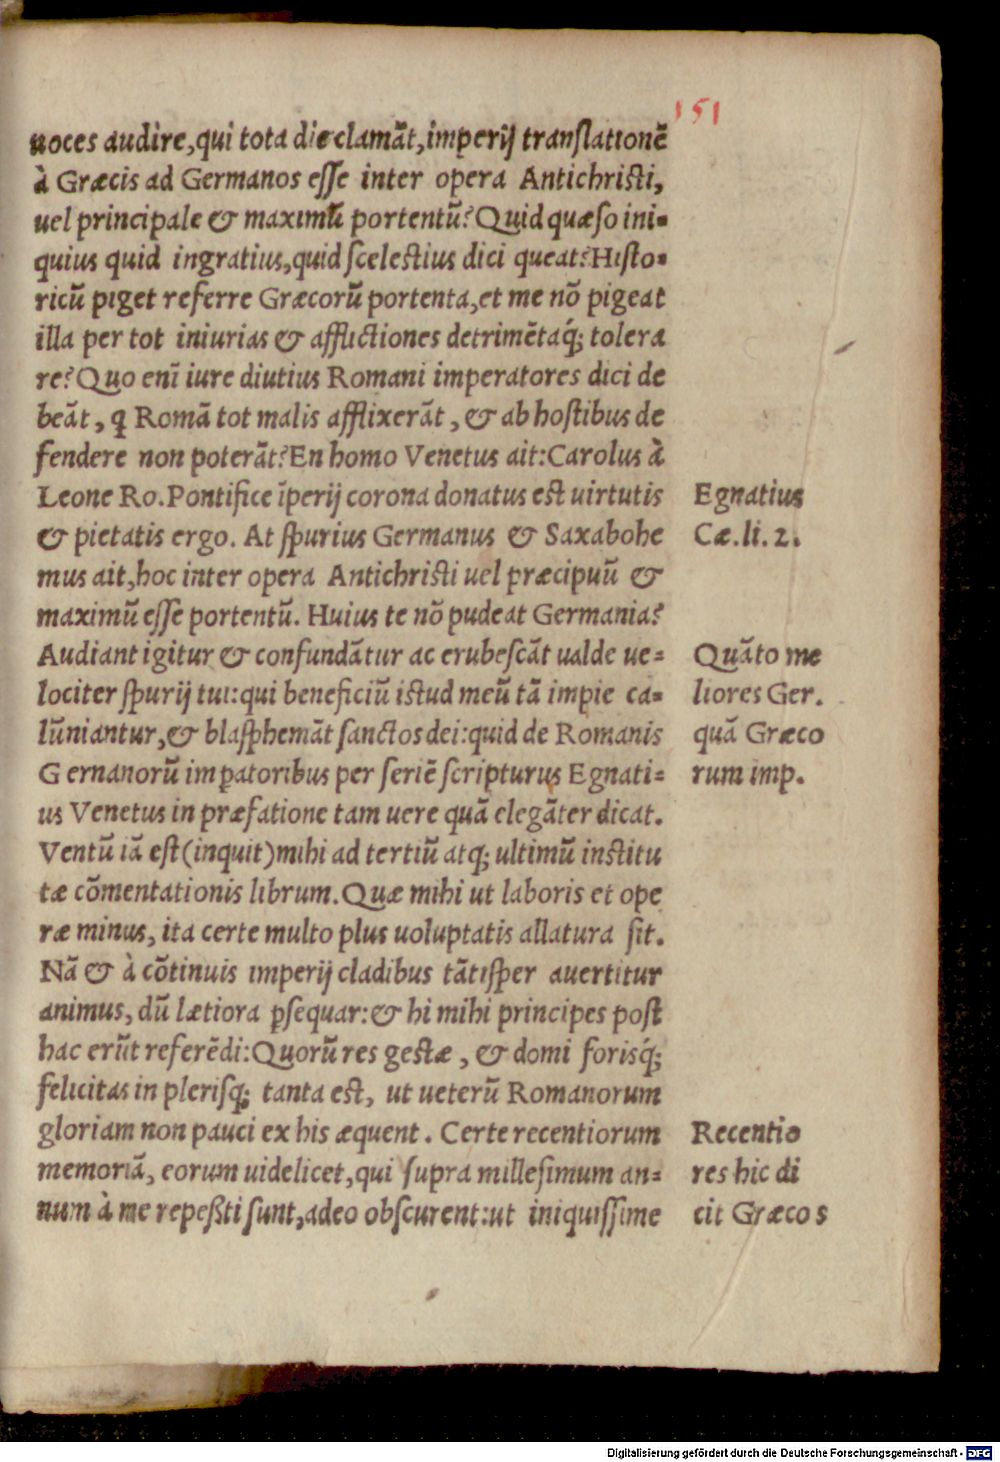 151
uoces audire,qui tota die clamãt,imperij translationẽ
à Græcis ad Germanos eſſe inter opera Antichriſti,
uel principale & maximũ portentũ? Quid quæſo ini-
quius quid ingratius,quid ſceleſtius dici queat? Hiſto-
ricũ piget referre Græcorũ portenta,et me nõ pigeat
illa per tot iniurias & afflictiones detrimẽtaq́; tolera
re? Quo enĩ iure diutius Romani imperatores dici de
beãt, ꝗ Romã tot malis afflixerãt, & ab hoſtibus de
fendere non poterãt? En homo Venetus ait: Carolus à
Leone Ro. Pontifice ĩperij corona donatus eſt uirtutis
& pietatis ergo. At ſpurius Germanus & Saxabohe
mus ait,hoc inter opera Antichriſti uel præcipuũ &
maximũ eſſe portentũ. Huius te nõ pudeat Germania?
Audiant igitur & confundãtur ac erubeſcãt ualde ue-
lociter ſpurij tui: qui beneficiũ iſtud meũ tã impie ca-
lũniantur,& blaſphemãt ſanctos dei: quid de Romanis
Gernanorũ imꝑatoribus per ſeriẽ ſcripturus Egnati-
us Venetus in præfatione tam uere quã elegãter dicat.
Ventũ iã eſt (inquit) mihi ad tertiũ atq; ultimũ inſtitu
tæ cõmentationis librum. Quæ mihi ut laboris et ope
ræ minus, ita certe multo plus uoluptatis allatura ſit.
Nã & à cõtinuis imperij cladibus tãtiſper auertitur
animus, dũ lætiora ꝑſequar: & hi mihi principes poſt
hac erũt referẽdi: Quorũ res geſtæ, & domi forisq́;
felicitas in pleriſq; tanta eſt, ut ueterũ Romanorum
gloriam non pauci ex his æquent. Certe recentiorum
memoriã, eorum uidelicet,qui ſupra milleſimum an-
num à me repeßti ſunt,adeo obſcurent: ut iniquiſſime
Egnatius
Cæ. li. 2.
Quãto me
liores Ger.
quã Græco
rum imp.
Recentio
res hic di
cit Græcos
Digitalisierung gefördert durch die Deutsche Forschungsgemeinschaft - DFG